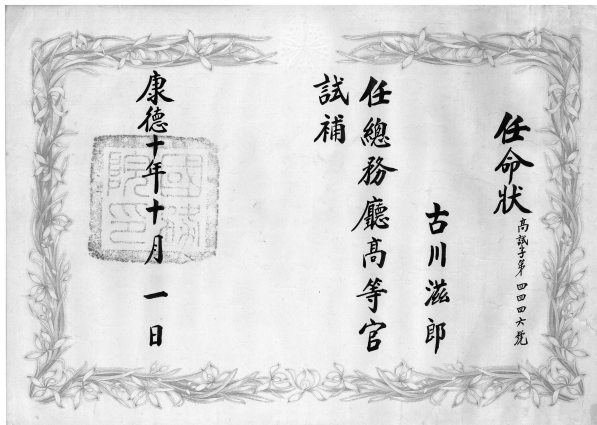 任命狀
高試字第四四四六號
古川滋郎
任總務廳高等官
試補
康德十年十月一日
國務院印